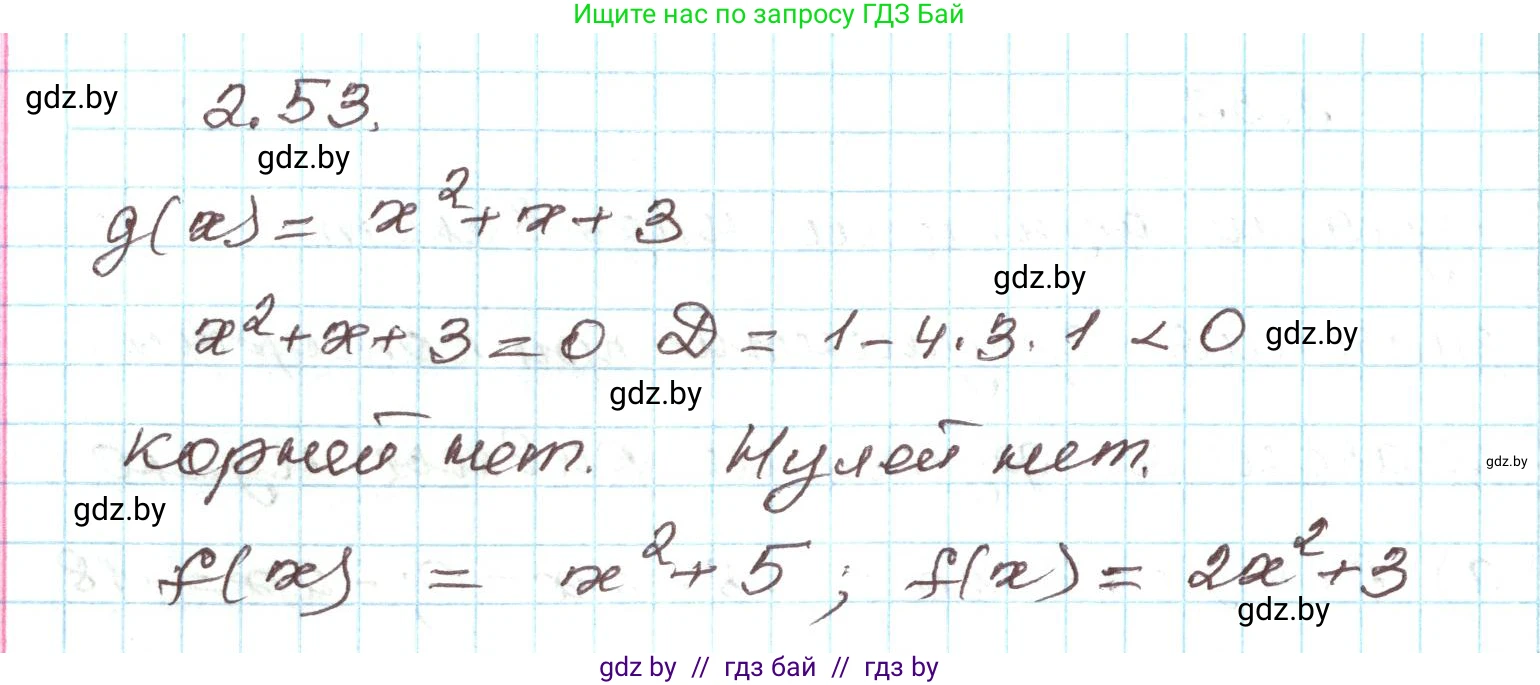 Ищите нас по запросу ГДЗ Бай
gdz.by 2.53.
gdz.by
g(x) = x²+x+3
gdz.by
x²+x+3=0 D = 1-4·3·1 < 0 gdz.by
gdz.by
корней нет. Нулей нет.
gdz.by
gdz.by
f(x) = x²+5; f(x) = 2x²+3
gdz.by
gdz by // гдз бай // гдз by